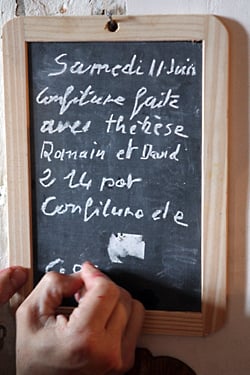 Samedi 11 Juin
Confiture faite
avec thérèse
Romain et David
2 14 pot
Confiture de